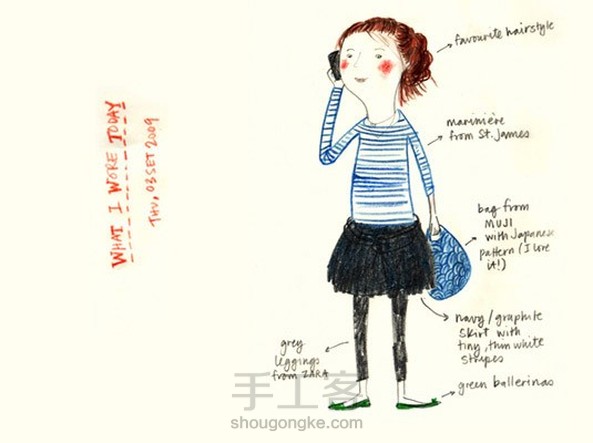 WHAT I WORE TODAY
THU, 03 SET 2009
favourite hairstyle
marinière
from St. James
bag from
MUJI
with Japanese
pattern (I love
it!)
navy/graphite
skirt with
tiny, thin white
stripes
grey
leggings
from ZARA
green ballerinas
手工客
shougongke.com